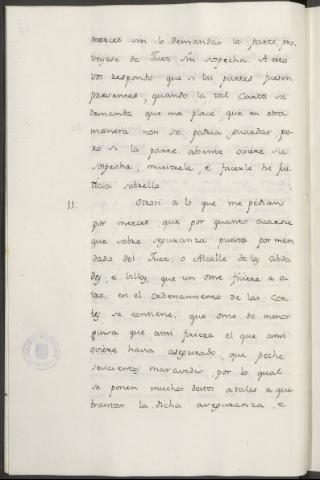 merced sin lo demandar la parte, pro
veyese de Juez sin sospecha. A esto
vos respondo que si las partes fuesen
presentes, quando la tal Carta se
demanda que me place, que en otra
manera non se podria guardar pe-
ro si la parte absente oviere su
sospecha, muestrela, e facerle he jus
ticia sobrello.
11. Otrosi a lo que me pedian
por merced, que por quanto acaesce
que sobre seguranza puesta por man
dado del Juez, o Alcalle de las cibda
des, e villas, que un ome ficiere a o-
tro, en el ordenamiento de las Cor-
tes se contiene, que ome de menor
guisa que ansi firiera el que ansi
oviere havia asegurado, que peche
seiscientos maravedis, por lo qual
se ponen muchos destos atales a que
brantar la dicha aseguranza, e